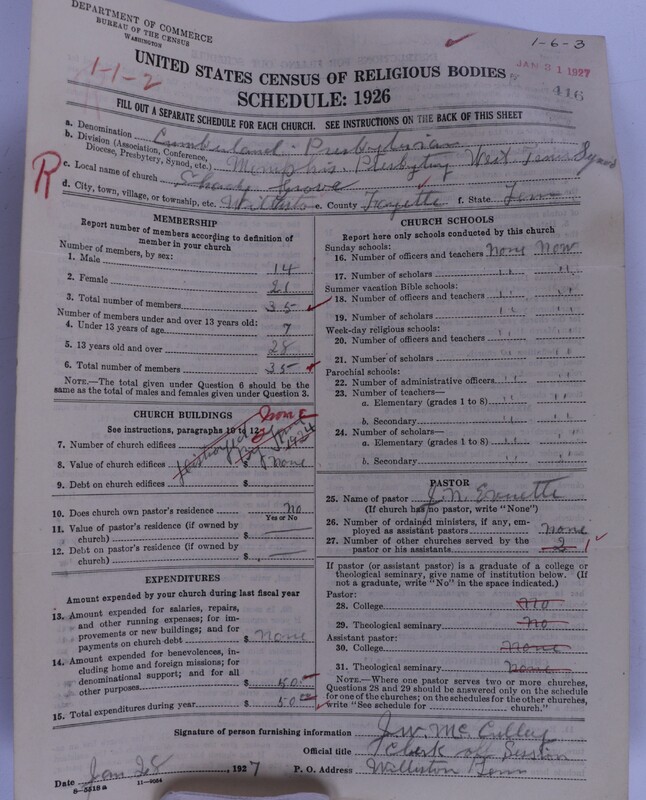 DEPARTMENT OF COMMERCE
BUREAU OF THE CENSUS
WASHINGTON
1-6-3
JAN 31 1927
416
1-1-2
UNITED STATES CENSUS OF RELIGIOUS BODIES
SCHEDULE: 1926
FILL OUT A SEPARATE SCHEDULE FOR EACH CHURCH. SEE INSTRUCTIONS ON THE BACK OF THIS SHEET
R
a. Denomination Cumberland Presbyterian
b. Division (Association, Conference, Diocese, Presbytery, Synod, etc.) Memphis Presbytery West Tenn Synod
c. Local name of church Shady Grove
d. City, town, village, or township, etc. Williston e. County Fayette f. State Tenn
MEMBERSHIP
Report number of members according to definition of
member in your church
Number of members, by sex:
1. Male 14
2. Female 21
3. Total number of members 35
Number of members under and over 13 years old:
4. Under 13 years of age 7
5. 13 years old and over 28
6. Total number of members 35
NOTE.—The total given under Question 6 should be
same as the total of males and females given under Question 3.
CHURCH BUILDINGS
None
See instructions, paragraphs 10 to 12
7. Number of church edifices
8. Value of church edifices $ None
9. Debt on church edifices $
Destroyed by 1924
10. Does church own pastor's residence No
Yes or No
11. Value of pastor's residence (if owned by
church) $
12. Debt on pastor's residence (if owned by
church) $
EXPENDITURES
Amount expended by your church during last fiscal year
13. Amount expended for salaries, repairs,
and other running expenses; for im-
provements or new buildings; and for
payments on church debt $ None
14. Amount expended for benevolences, in-
cluding home and foreign missions; for
denominational support; and for all
other purposes $ 50 00
15. Total expenditures during year $ 50 00
CHURCH SCHOOLS
Report here only schools conducted by this church
Sunday schools:
16. Number of officers and teachers None Now
17. Number of scholars " "
Summer vacation Bible schools:
18. Number of officers and teachers " "
19. Number of scholars " "
Week-day religious schools:
20. Number of officers and teachers " "
21. Number of scholars " "
Parochial schools:
22. Number of administrative officers " "
23. Number of teachers—
a. Elementary (grades 1 to 8) " "
b. Secondary " "
24. Number of scholars—
a. Elementary (grades 1 to 8) " "
b. Secondary " "
PASTOR
25. Name of pastor J. N.
(If church has no pastor, write "None")
26. Number of ordained ministers, if any, em-
ployed as assistant pastors None
27. Number of other churches served by the
pastor or his assistants 2 1
If pastor (or assistant pastor) is a graduate of a college or
theological seminary, give name of institution below. (If
not a graduate, write "No" in the space indicated.)
Pastor:
28. College No
29. Theological seminary No
Assistant pastor:
30. College None
31. Theological seminary None
NOTE.—Where one pastor serves two or more churches,
Questions 28 and 29 should be answered only on the schedule
for one of the churches; on the schedules for the other churches,
write "See schedule for church."
Signature of person furnishing information J. W. McCulley
Official title Clerk of Session
Date Jan 28, 1927 P. O. Address Williston Tenn
8-5518a 11-9064